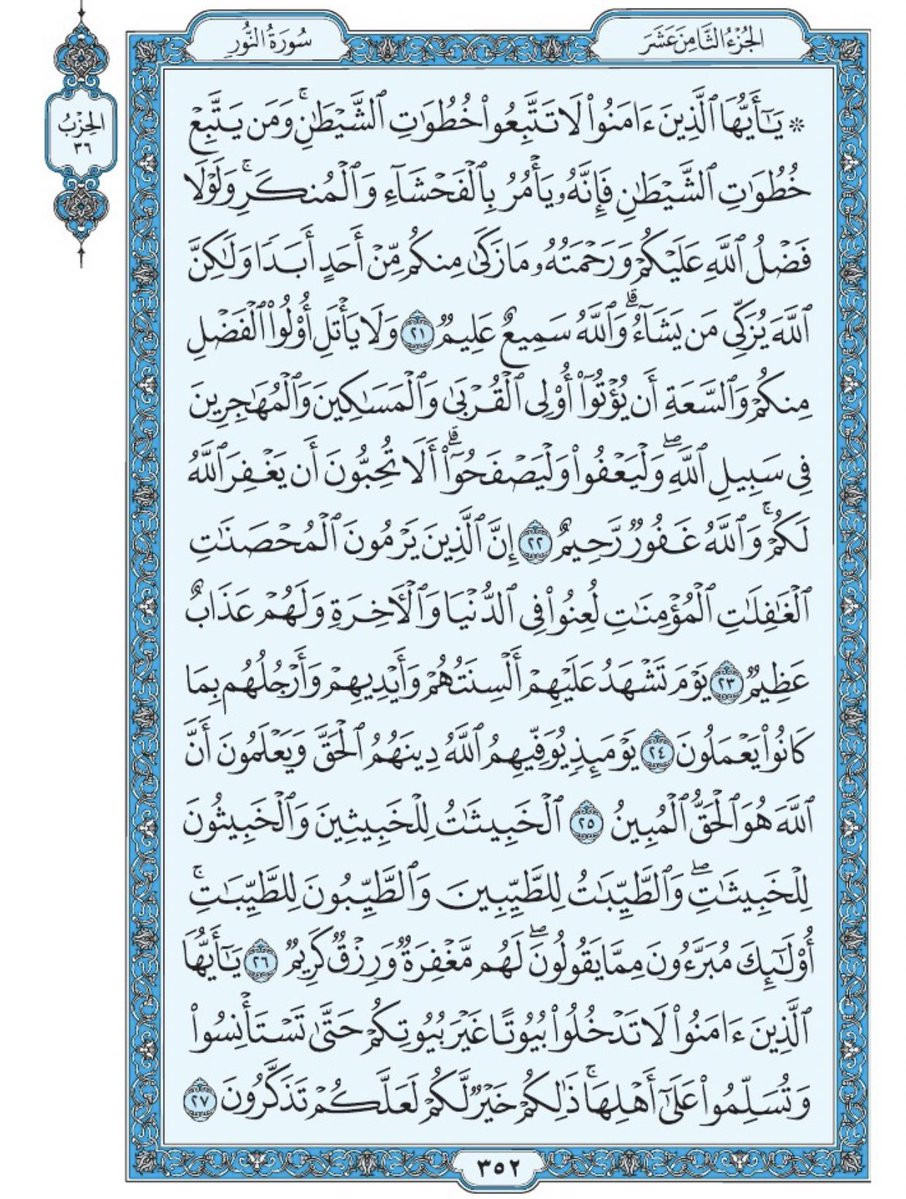 الجُزْءُ الثَّامِنَ عَشَرَ
سُورَةُ النُّورِ
الحِزْبُ
٣٦
۞ يَـٰٓأَيُّهَا ٱلَّذِينَ ءَامَنُوا۟ لَا تَتَّبِعُوا۟ خُطُوَٰتِ ٱلشَّيْطَـٰنِ ۚ وَمَن يَتَّبِعْ
خُطُوَٰتِ ٱلشَّيْطَـٰنِ فَإِنَّهُۥ يَأْمُرُ بِٱلْفَحْشَآءِ وَٱلْمُنكَرِ ۚ وَلَوْلَا
فَضْلُ ٱللَّهِ عَلَيْكُمْ وَرَحْمَتُهُۥ مَا زَكَىٰ مِنكُم مِّنْ أَحَدٍ أَبَدًا وَلَـٰكِنَّ
ٱللَّهَ يُزَكِّى مَن يَشَآءُ ۗ وَٱللَّهُ سَمِيعٌ عَلِيمٌ ٢١ وَلَا يَأْتَلِ أُو۟لُوا۟ ٱلْفَضْلِ
مِنكُمْ وَٱلسَّعَةِ أَن يُؤْتُوٓا۟ أُو۟لِى ٱلْقُرْبَىٰ وَٱلْمَسَـٰكِينَ وَٱلْمُهَـٰجِرِينَ
فِى سَبِيلِ ٱللَّهِ ۖ وَلْيَعْفُوا۟ وَلْيَصْفَحُوٓا۟ ۗ أَلَا تُحِبُّونَ أَن يَغْفِرَ ٱللَّهُ
لَكُمْ ۚ وَٱللَّهُ غَفُورٌ رَّحِيمٌ ٢٢ إِنَّ ٱلَّذِينَ يَرْمُونَ ٱلْمُحْصَنَـٰتِ
ٱلْغَـٰفِلَـٰتِ ٱلْمُؤْمِنَـٰتِ لُعِنُوا۟ فِى ٱلدُّنْيَا وَٱلْـَٔاخِرَةِ وَلَهُمْ عَذَابٌ
عَظِيمٌ ٢٣ يَوْمَ تَشْهَدُ عَلَيْهِمْ أَلْسِنَتُهُمْ وَأَيْدِيهِمْ وَأَرْجُلُهُم بِمَا
كَانُوا۟ يَعْمَلُونَ ٢٤ يَوْمَئِذٍ يُوَفِّيهِمُ ٱللَّهُ دِينَهُمُ ٱلْحَقَّ وَيَعْلَمُونَ أَنَّ
ٱللَّهَ هُوَ ٱلْحَقُّ ٱلْمُبِينُ ٢٥ ٱلْخَبِيثَـٰتُ لِلْخَبِيثِينَ وَٱلْخَبِيثُونَ
لِلْخَبِيثَـٰتِ ۖ وَٱلطَّيِّبَـٰتُ لِلطَّيِّبِينَ وَٱلطَّيِّبُونَ لِلطَّيِّبَـٰتِ ۚ
أُو۟لَـٰٓئِكَ مُبَرَّءُونَ مِمَّا يَقُولُونَ ۖ لَهُم مَّغْفِرَةٌ وَرِزْقٌ كَرِيمٌ ٢٦ يَـٰٓأَيُّهَا
ٱلَّذِينَ ءَامَنُوا۟ لَا تَدْخُلُوا۟ بُيُوتًا غَيْرَ بُيُوتِكُمْ حَتَّىٰ تَسْتَأْنِسُوا۟
وَتُسَلِّمُوا۟ عَلَىٰٓ أَهْلِهَا ۚ ذَٰلِكُمْ خَيْرٌ لَّكُمْ لَعَلَّكُمْ تَذَكَّرُونَ ٢٧
٣٥٢